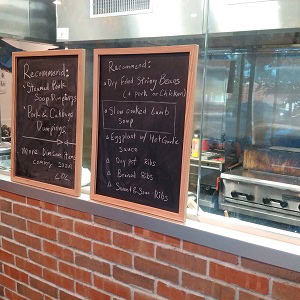 Recommend:
Steamed Pork
Soup Dumplings
Pork & Cabbage
Dumplings
More Dim Sum Items
coming soon
Recommend:
Dry Fried String Beans
(+ pork or Chicken)
Slow cooked Lamb
Soup
Eggplant w/ Hot Garlic
Sauce
Dry pot Ribs
Braised Ribs
Sweet & Sour Ribs